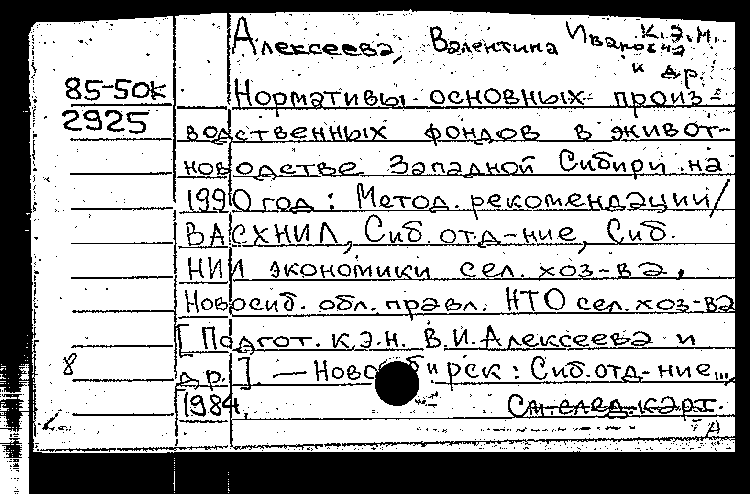 Алексеева, Валентина Ивановна к.э.н.
и др.
85-50к Нормативы основных произ-
2925 водственных фондов в живот-
новодстве Западной Сибири на
1990 год : Метод. рекомендации/
ВАСХНИЛ, Сиб. отд-ние, Сиб.
НИИ экономики сел. хоз-ва,
Новосиб. обл. правл. НТО сел. хоз-ва
[Подгот. к.э.н. В.И. Алексеева и
8 др.]. — Новосибирск : Сиб. отд-ние...,
1984. См. след. карт.